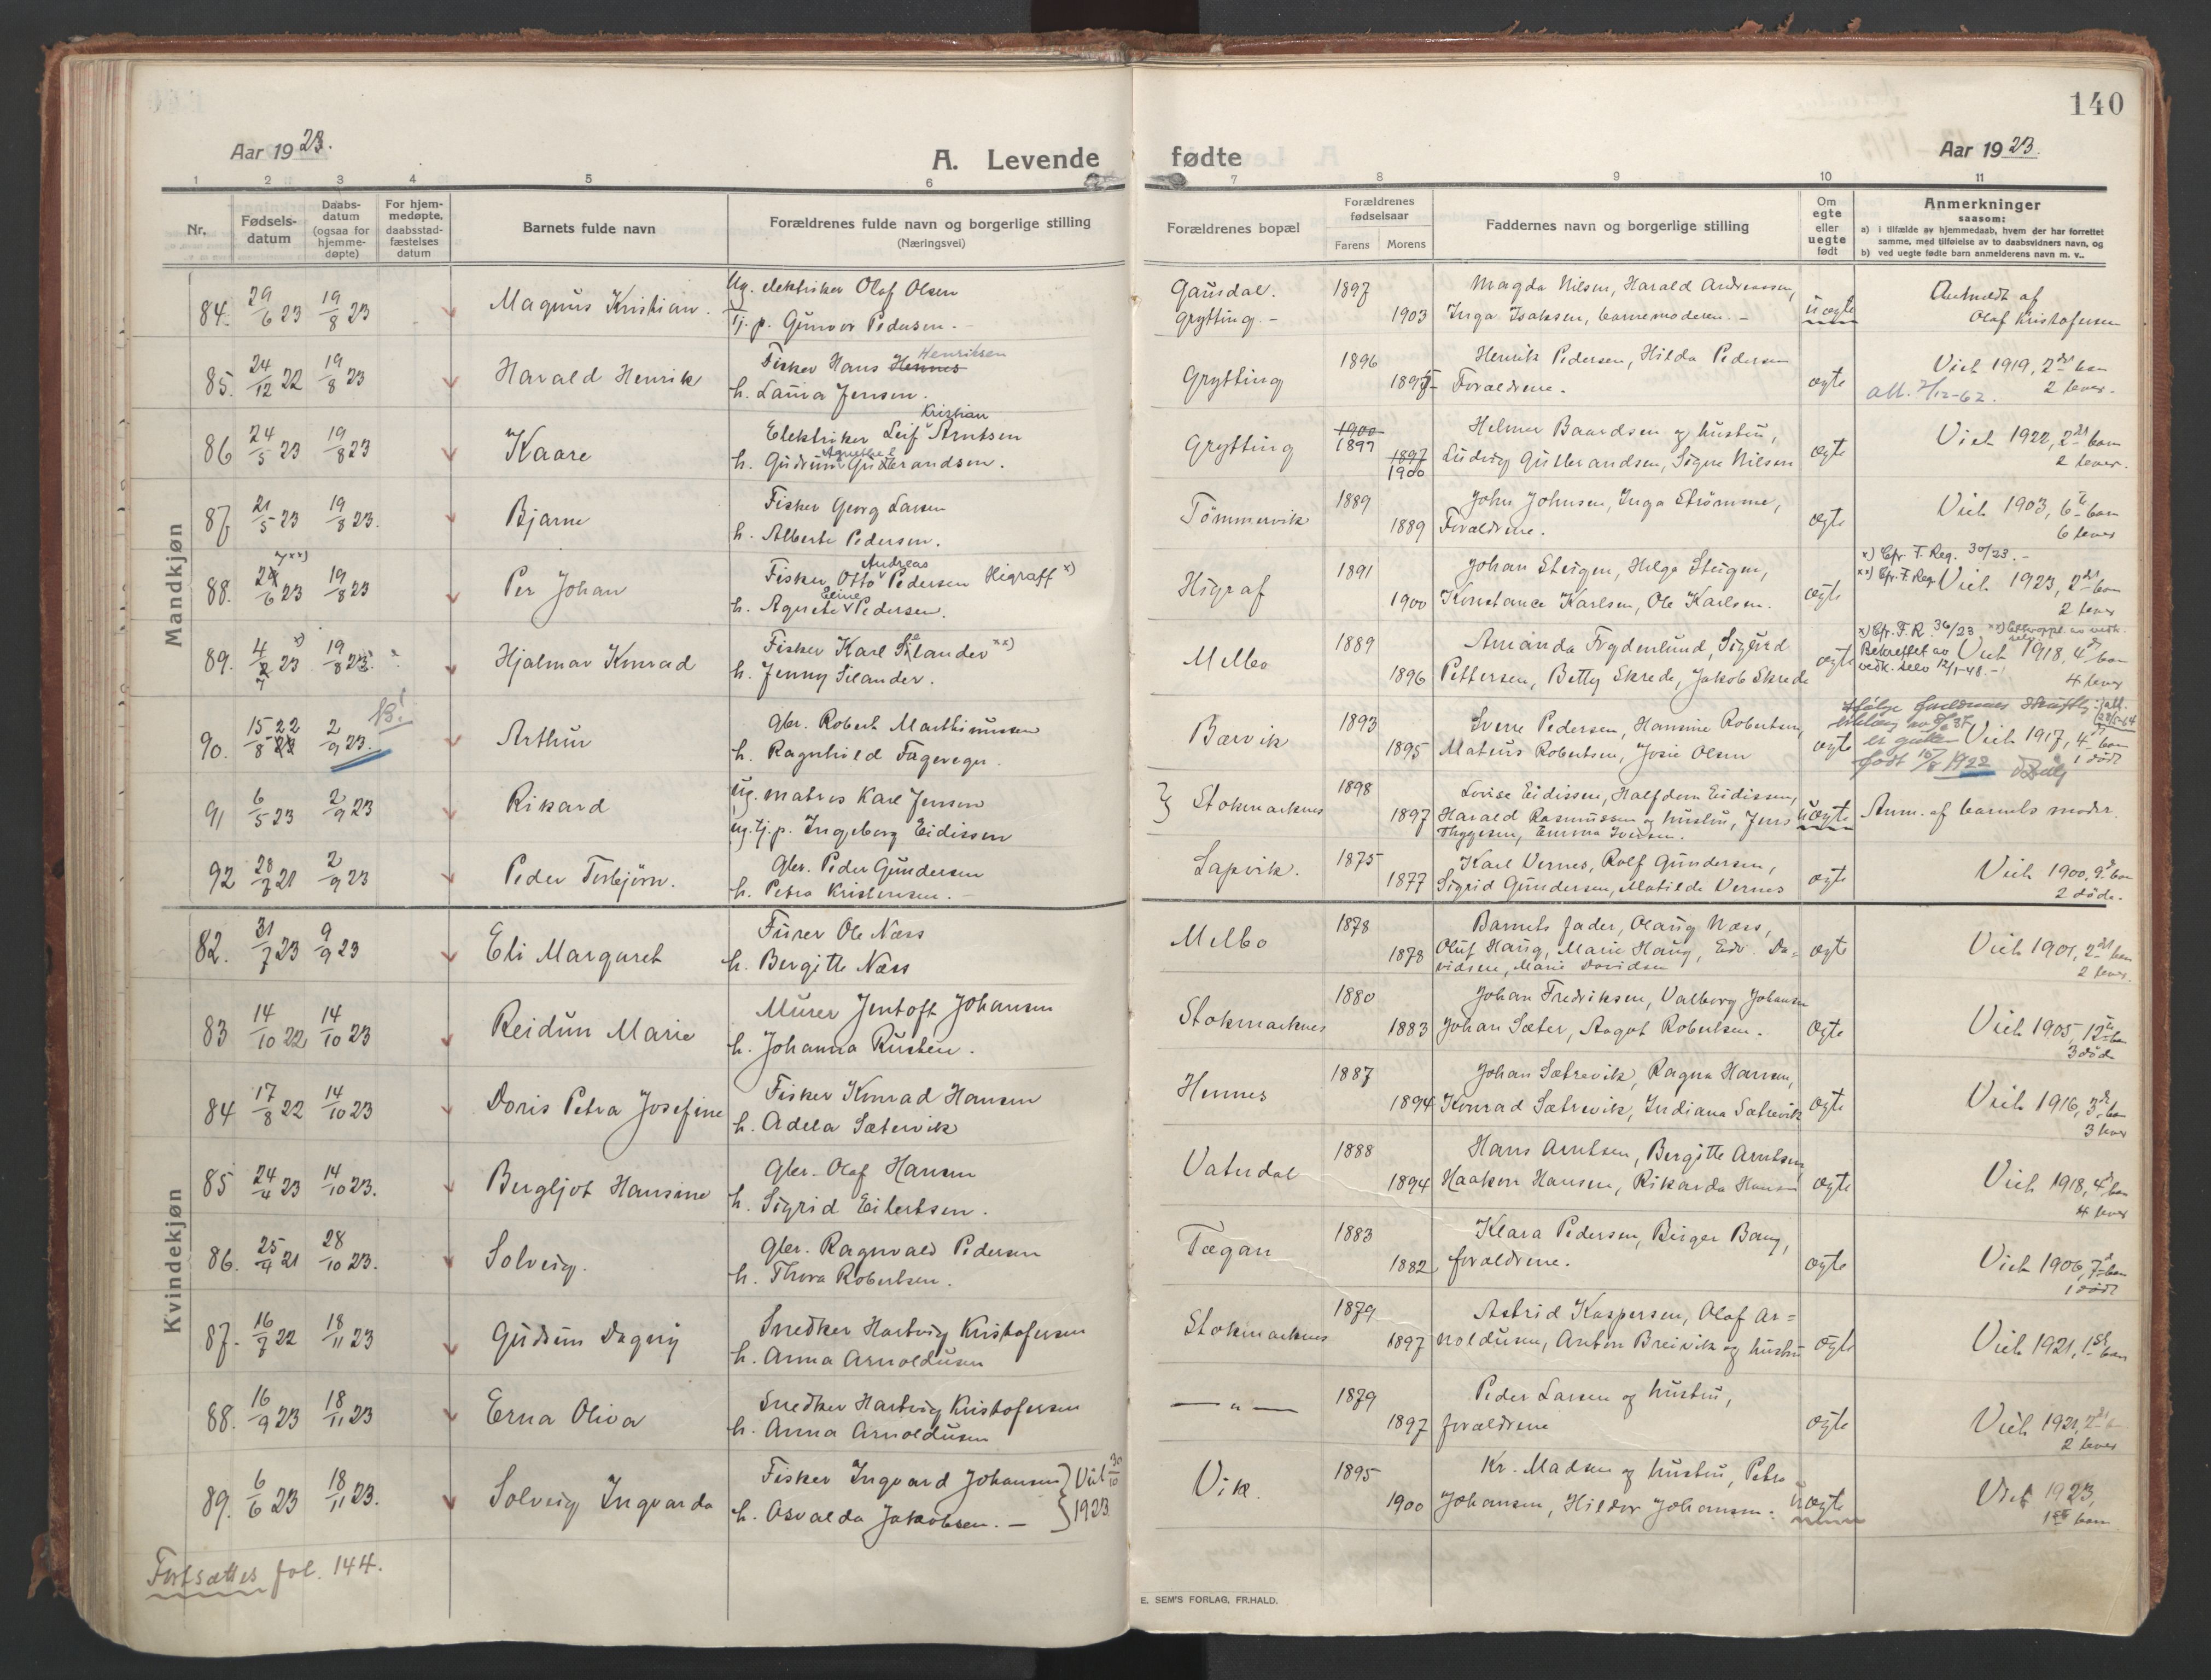 140
Aar 1923.
A. Levende fødte
Aar 1923.
1 2 3 4 5 6 7 8 9 10 11
Nr.
Fødsels-
datum
Daabs-
datum
(ogsaa for
hjemme-
døpte)
For hjem-
medøpte,
daabsstad-
fæstelses
datum
Barnets fulde navn
Forældrenes fulde navn og borgerlige stilling
(Næringsvei)
Forældrenes bopæl
Forældrenes
fødselsaar
Farens Morens
Faddernes navn og borgerlige stilling
Om
egte
eller
uegte
født
Anmerkninger
saasom:
a) i tilfælde av hjemmedaab, hvem der har forrettet
samme, med tilføielse av to daabsvidners navn, og
b) ved uegte fødte barn anmelderens navn m. v..
Mandkjøn
84. 29/6 23 19/8 23 Magnus Kristian. Ug. elektriker Olaf Olsen Gausdal. 1897 Magda Nilsen, Harald Andreassen, uegte Anmeldt af
Tj. p. Gunvor Pedersen. Grytting. 1903 Inga Isaksen, barnemoderen. Olaf Kristofersen
85. 24/12 22 19/8 23 Harald Henrik Fisker Hans Hennes Henriksen Grytting 1896 Henrik Pedersen, Hilda Pedersen ægte Viet 1919, 2det barn
h. Laura Jensen. 1895 Forældrene. att. 7/12-62. 2 lever.
86 24/5 23 19/8 23 Kaare Elektriker Leif Kristian Arntsen Grytting 1900 1897 Helmer Baardsen og hustru, ægte Viet 1922, 2det barn
h. Gudrun Gudbrandsen. 1897 1900 Ludvig Gulbrandsen, Signe Nilsen 2 lever.
87 21/5 23 19/8 23. Bjarne Fisker Georg Larsen Tömmervik 1889 John Johnsen, Inga Strömme, ægte Viet 1903, 6te barn
h. Alberte Pedersen. 1889 Forældrene. 6 lever
88. 24/6 23 xx) 19/8 23 Per Johan Fisker Otto Andreas Pedersen Higraff x) Higraf 1891 Johan Steigen, Helga Steigen, ægte x) Cfr. F. Reg. 30/23. -
xx) Cfr. F. Reg. Viet 1923, 2det barn
h. Agnete Eline Pedersen. 1900 Konstance Karlsen, Ole Karlsen. 2 lever
89. 4/7 23 x) 19/8 23. Hjalmar Konrad Fisker Karl Silander xx) Melbo 1889 Amanda Frydenlund, Sigurd ægte x) Cfr. F. R. 36/23
Bekreftet av Viet 1918, 4de barn
h. Jenny Silander. 1896 Pettersen, Betty Skrede, Jakob Skrede vedk. selv 12/1-48. 4 lever
90. 15/8 22 2/9 23. Arthur Gbr. Robert Marthinussen Barvik 1893 Sverre Pedersen, Hansine Robertsen, ægte Viet 1917, 4de barn
h. Ragnhild Fagereger. 1895 Mateus Robertsen, Josie Olsen født 15/8 1922 1 død
91 6/5 23 2/9 23 Rikard Ug. matros Karl Jensen Stokmarknes 1898 Lovise Eidissen, Halfdan Eidissen, uegte Anm. af barnets moder.
ug. tj. p. Ingeborg Eidissen 1897 Harald Rasmussen og hustru, Jens
Thygesen, Emma Iversen.
92 28/7 21 2/9 23 Peder Torbjørn. Gbr. Peder Gundersen Lapvik. 1875 Karl Vernes, Rolf Gundersen, ægte Viet 1900, 9de barn
h. Petra Kristensen. 1877 Sigrid Gundersen, Matilde Vernes 2 døde.
Kvindekjøn
82. 31/7 23 9/9 23 Eli Margaret Furer Ole Næss Melbo 1878 Barnets fader, Olaug Næss, ægte Viet 1901, 2det barn
h. Bergitte Næss 1878 Oluf Haug, Marie Haug, Edv. Da-
vidsen, Marie Davidsen 2 lever.
83 14/10 22 14/10 23 Reidun Marie Murer Jentoft Johansen Stokmarknes 1880 Johan Fredriksen, Valborg Johansen ægte Viet 1905, 12te barn
h. Johanna Rusten. 1883 Johan Sæter, Aagot Robertsen. 3 døde
84 17/8 22 14/10 23 Doris Petra Josefine Fisker Konrad Hansen Hennes 1887 Johan Sætrevik, Ragna Hansen, ægte Viet 1916, 3de barn
h. Adela Sætervik 1894 Konrad Sætrevik, Indiana Sætrevik 3 lever
85 24/4 23 14/10 23. Bergljot Hansine Gbr. Olaf Hansen Vaterdal 1888 Hans Arntsen, Bergitte Arntsen, ægte Viet 1918, 4de barn
h. Sigrid Eilertsen. 1894 Haakon Hansen, Rikarda Hansen 4 lever
86. 25/9 21 28/10 23. Solveig. Gbr. Ragnvald Pedersen Tægan 1883 Klara Pedersen, Birger Bang, ægte Viet 1906, 7de barn
h. Thora Robertsen. 1882 forældrene. 1 død
87. 16/7 22 18/11 23 Gudrun Dagny Snedker Hartvig Kristofersen Stokmarknes 1879 Astrid Kaspersen, Olaf Ar=
h. Anna Arnoldusen 1897 noldusen, Anton Breivik og hustru ægte Viet 1921, 1ste barn
88. 16/9 23 18/11 23 Erna Oliva Snedker Hartvig Kristofersen — " — 1879 Peder Larsen og hustru, ægte Viet 1921, 2det b
h. Anna Arnoldusen 1897 forældrene 2 lever
89. 6/6 23 18/11 23. Solveig Ingvarda Fisker Ingvard Johansen } Viet 30/10 Vik. 1895 Kr. Madsen og hustru, Petra uegte Viet 1923,
h. Asvalda Jakobsen. — } 1923 1900 Johansen, Hildor Johansen. 1ste barn
Fortsættes fol. 144.
E. SEM'S FORLAG, FR.HALD.